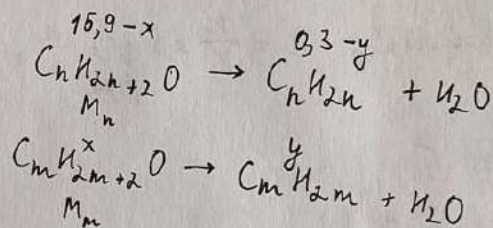 15,9 - x 0,3 - y
CnH2n+2O → CnH2n + H2O
Mn
x y
CmH2m+2O → CmH2m + H2O
Mm